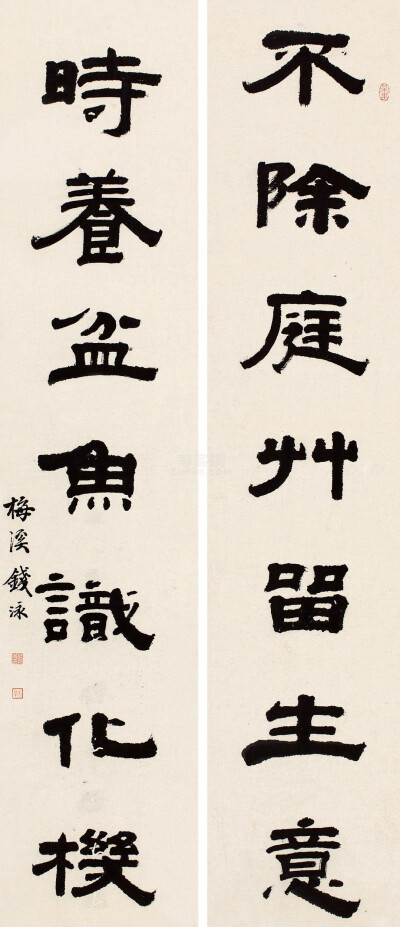 不除庭艸留生意
時養盆魚識化機
梅溪錢泳